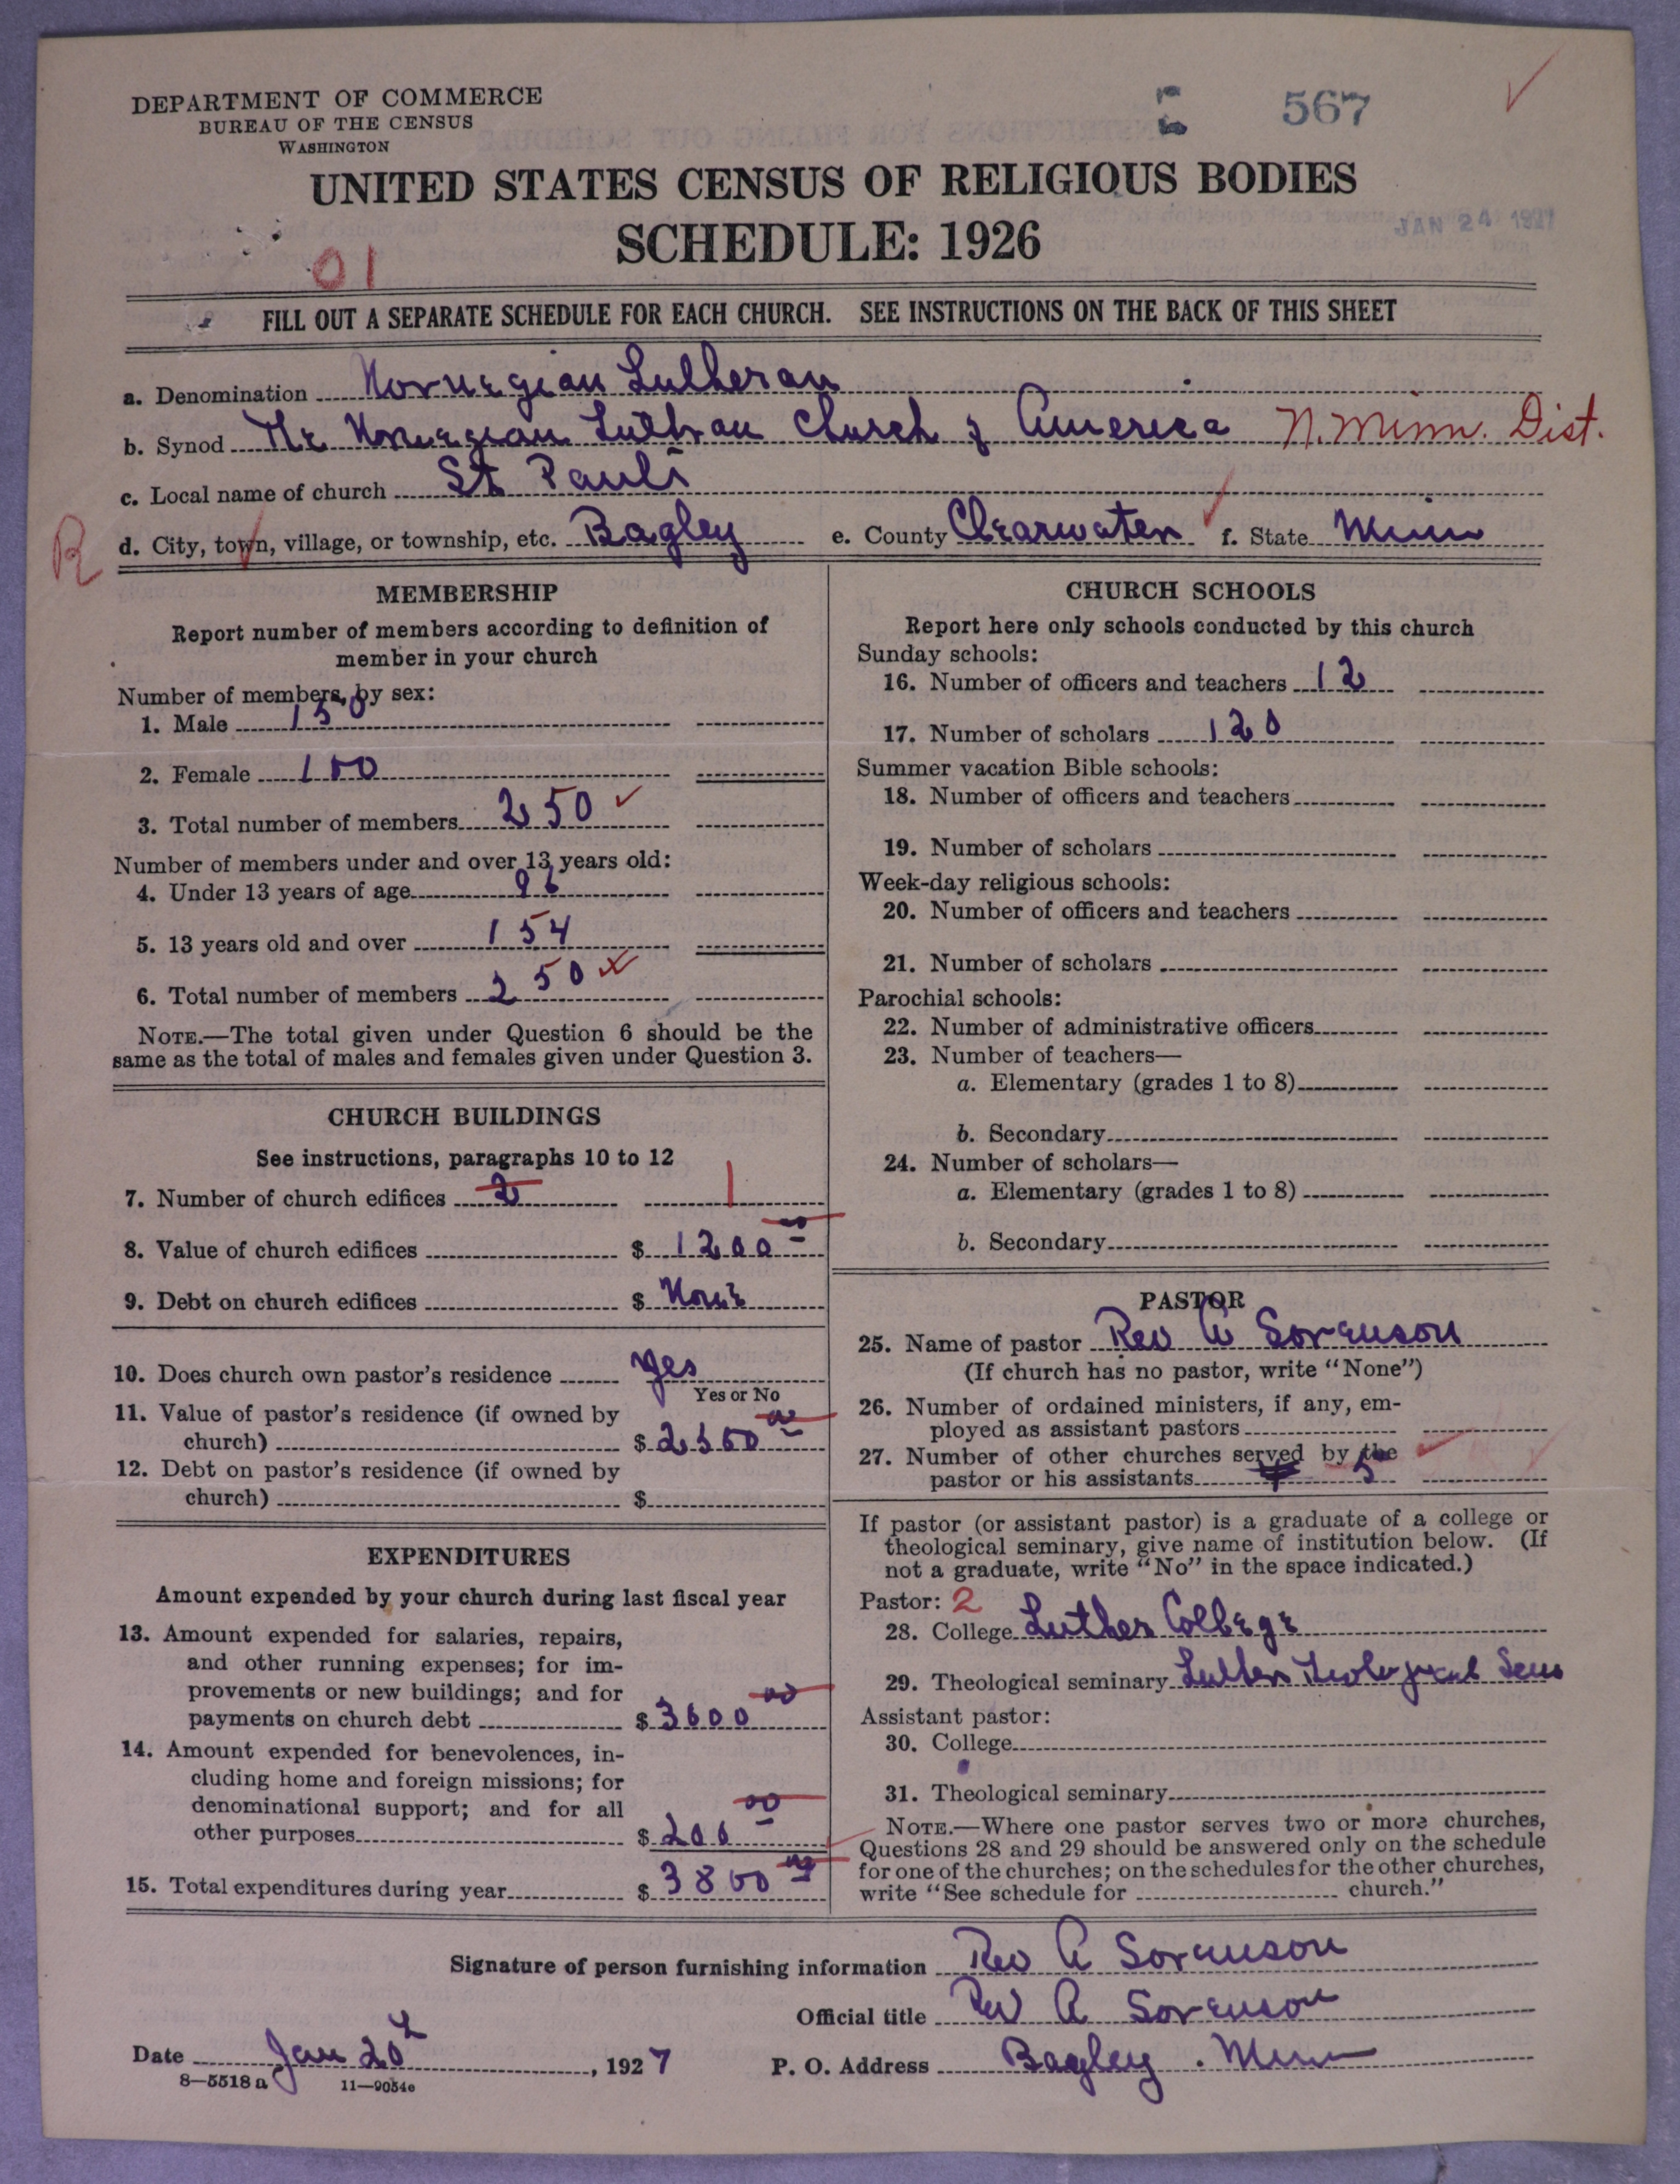 DEPARTMENT OF COMMERCE
BUREAU OF THE CENSUS
WASHINGTON
567
UNITED STATES CENSUS OF RELIGIOUS BODIES
SCHEDULE: 1926
JAN 24 1927
01
FILL OUT A SEPARATE SCHEDULE FOR EACH CHURCH. SEE INSTRUCTIONS ON THE BACK OF THIS SHEET
a. Denomination Norwegian Lutheran
b. Synod The Norwegian Luthran Church of America N. Minn. Dist.
c. Local name of church St Pauls
R d. City, town, village, or township, etc. Bagley e. County Clearwater f. State Minn
MEMBERSHIP
Report number of members according to definition of
member in your church
Number of members, by sex:
1. Male 150
2. Female 100
3. Total number of members 250
Number of members under and over 13 years old:
4. Under 13 years of age 96
5. 13 years old and over 154
6. Total number of members 250
NOTE.—The total given under Question 6 should be the
same as the total of males and females given under Question 3.
CHURCH BUILDINGS
See instructions, paragraphs 10 to 12
7. Number of church edifices 2 1
8. Value of church edifices $ 1200 00
9. Debt on church edifices $ None
10. Does church own pastor's residence yes
Yes or No
11. Value of pastor's residence (if owned by
church) $ 2500 00
12. Debt on pastor's residence (if owned by
church) $
EXPENDITURES
Amount expended by your church during last fiscal year
13. Amount expended for salaries, repairs,
and other running expenses; for im-
provements or new buildings; and for
payments on church debt $ 3600 00
14. Amount expended for benevolences, in-
cluding home and foreign missions; for
denominational support; and for all
other purposes $ 200 00
15. Total expenditures during year $ 3800 00
CHURCH SCHOOLS
Report here only schools conducted by this church
Sunday schools:
16. Number of officers and teachers 12
17. Number of scholars 120
Summer vacation Bible schools:
18. Number of officers and teachers
19. Number of scholars
Week-day religious schools:
20. Number of officers and teachers
21. Number of scholars
Parochial schools:
22. Number of administrative officers
23. Number of teachers—
a. Elementary (grades 1 to 8)
b. Secondary
24. Number of scholars—
a. Elementary (grades 1 to 8)
b. Secondary
PASTOR
25. Name of pastor Rev A Sorenson
(If church has no pastor, write "None")
26. Number of ordained ministers, if any, em-
ployed as assistant pastors
27. Number of other churches served by the
pastor or his assistants 5
If pastor (or assistant pastor) is a graduate of a college or
theological seminary, give name of institution below. (If
not a graduate, write "No" in the space indicated.)
Pastor: 2
28. College Luther College
29. Theological seminary Luther Theological Sem
Assistant pastor:
30. College
31. Theological seminary
NOTE.—Where one pastor serves two or more churches,
Questions 28 and 29 should be answered only on the schedule
for one of the churches; on the schedules for the other churches,
write "See schedule for church."
Signature of person furnishing information Rev A Sorenson
Official title Rev A Sorenson
Date Jan 20, 1927 P. O. Address Bagley. Minn
8—5518 a 11—9054e